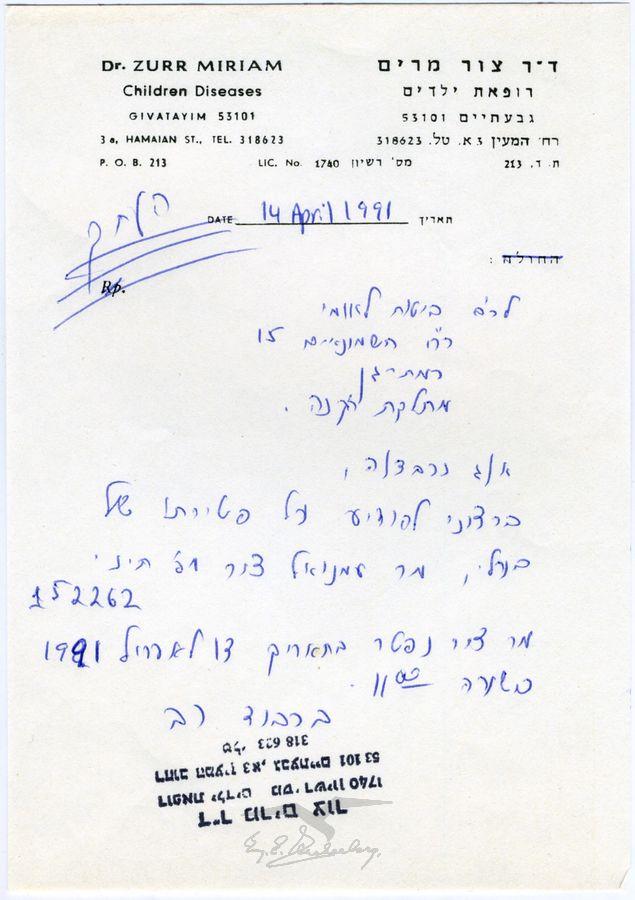 Dr. ZURR MIRIAM
Children Diseases
GIVATAYIM 53101
3 a, HAMAIAN ST., TEL. 318623
P. O. B. 213
LIC. No. 1740 מס' רשיון
ד״ר צור מרים
רופאת ילדים
גבעתיים 53101
רח' המעין 3 א. טל. 318623
ת. ד. 213
העתק
DATE 14 April 1991 תאריך
החולה :
Rp.
לכב' ביטוח לאומי
רח' החשמונאים 15
רמת-גן
מחלקת זקנה.
א.ג נכבדה,
ברצוני להודיע על פטירתו של
בעלי, מר עמנואל צור מס'
152262
מר צור נפטר בתאריך לאפריל 1991
בשעה 11⁰⁰.
בכבוד רב
ד״ר צור מרים
רופאת ילדים מס' רשיון 1740
רחוב המעין 3א, גבעתיים 53101
טל. 318 623